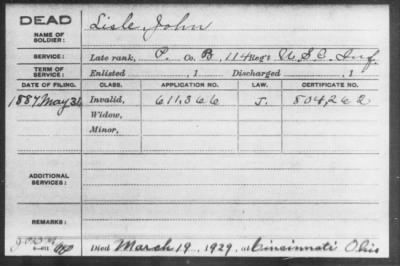 DEAD
NAME OF SOLDIER:
Lisle, John
SERVICE:
Late rank, P. Co. B, 114 Reg't U.S.C. Inf.
TERM OF SERVICE:
Enlisted , 1 Discharged , 1
DATE OF FILING. CLASS. APPLICATION NO. LAW. CERTIFICATE NO.
1887 May 31 Invalid, 611,366 J. 804,262
Widow,
Minor,
ADDITIONAL SERVICES:
REMARKS:
Died March 19, 1929, at Cincinnati Ohio